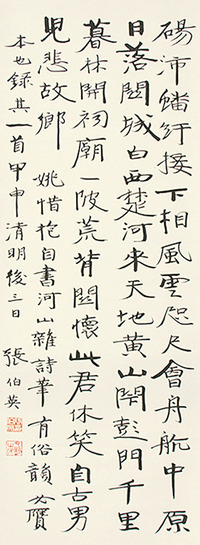 碭沛蟠紆接下相風雲咫尺會舟航中原
日落閻城白西楚河來天地黃山闢彭門千里
暮林開祠廟一陂荒背關懷此君休笑自古男
兒悲故鄉 姚惜抱自書河山雜詩筆有俗韻必贗
本也錄其一首甲申清明後三日 張伯英